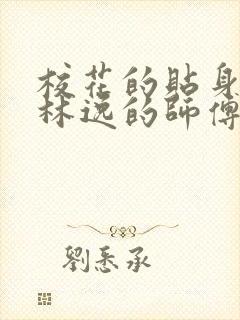 校花的貼身
林逸的師傅
劉悉承